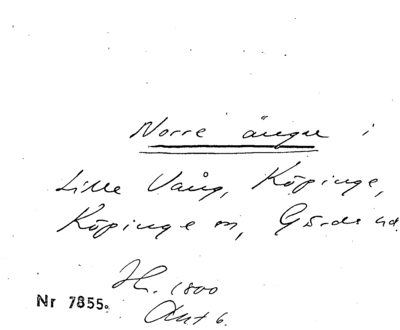 Norre ängen i
Lille Vång, Köpinge,
Köpinge sn, Gärds hd.
H. 1800
Akt 6.
Nr 7855.